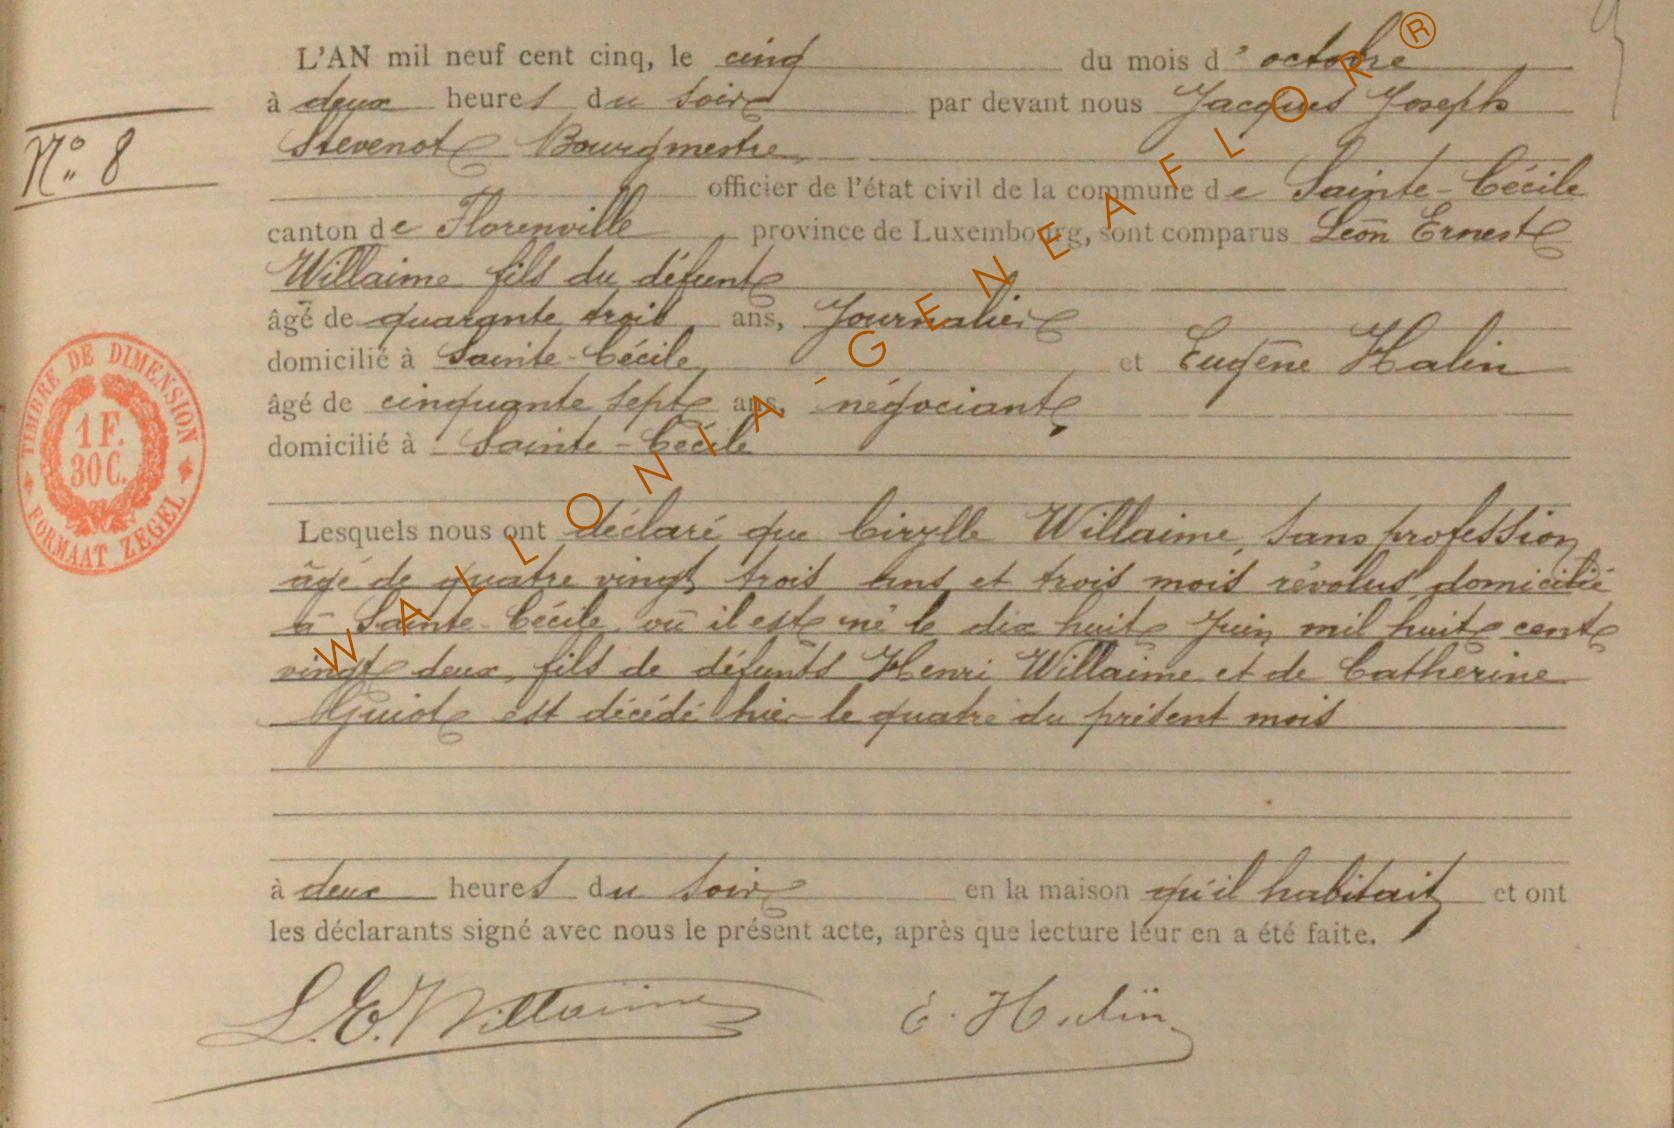 L'AN mil neuf cent cinq, le cinq du mois d'octobre
à deux heures du soir par devant nous Jacques Joseph
Stevenot Bourgmestre
officier de l'état civil de la commune de Sainte-Cécile
N° 8
canton de Florenville province de Luxembourg, sont comparus Léon Ernest
Willaime fils du défunt
âgé de quarante trois ans, Journalier
domicilié à Sainte-Cécile et Eugène Halin
âgé de cinquante sept ans, négociant
domicilié à Sainte-Cécile
TIMBRE DE DIMENSION
1 F.
30 C.
FORMAAT ZEGEL
Lesquels nous ont déclaré que Cirylle Willaime, sans profession
âgé de quatre vingt trois ans et trois mois révolus, domicilié
à Sainte-Cécile où il est né le dix huit Juin mil huit cent
vingt deux, fils de défunts Henri Willaime et de Catherine
Guiot est décédé hier le quatre du présent mois
à deux heures du soir en la maison qu'il habitait et ont
les déclarants signé avec nous le présent acte, après que lecture leur en a été faite.
L.E. Willaime E. Halin
WALLONIA-GENEAFLOR®